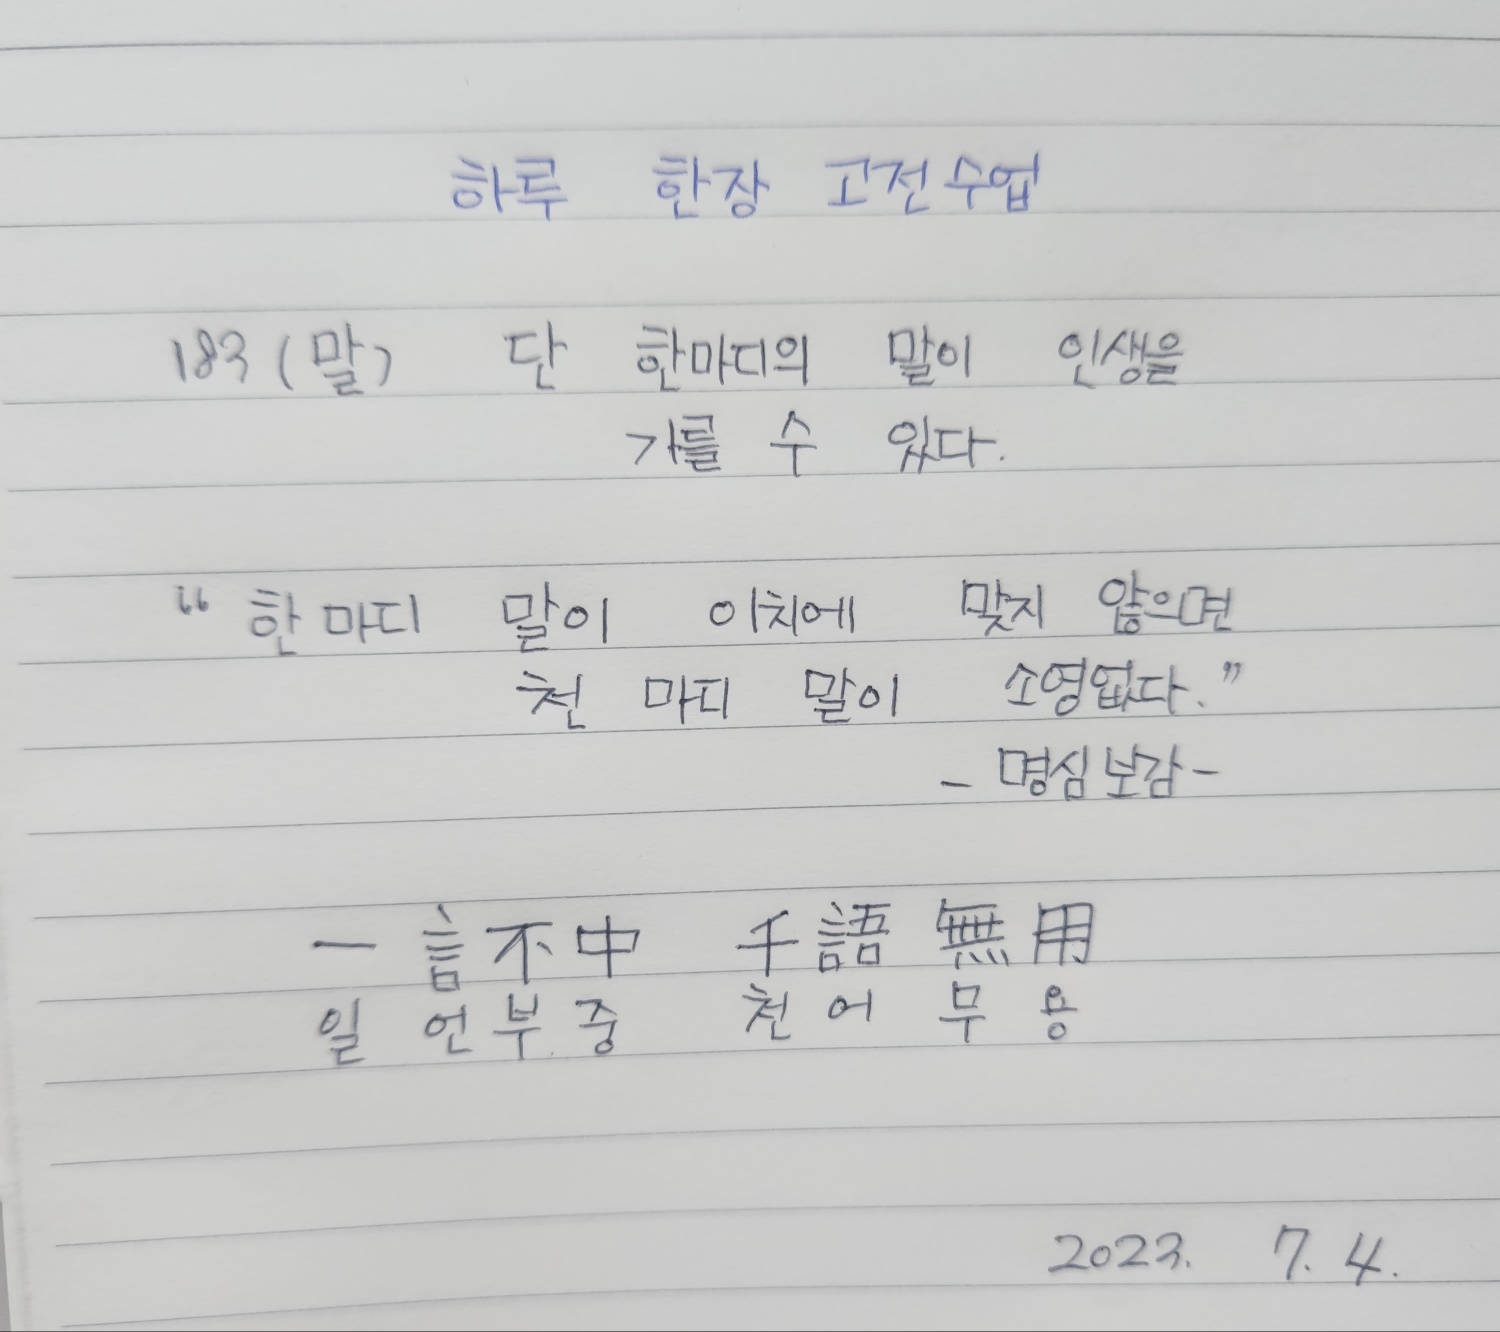 하루 한장 고전수업
183(말) 단 한마디의 말이 인생을
가를 수 있다.
“한마디 말이 이치에 맞지 않으면
천 마디 말이 소영없다.”
- 명심보감-
一言不中 千語無用
일언부중 천어무용
2023. 7. 4.